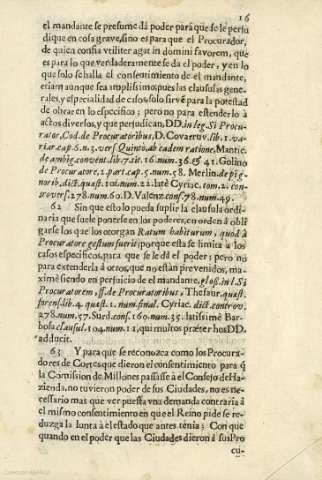 16
el mandante se presume dá poder para que se le perju
dique en cosa grave, sino es para que el Procurador,
de quien confia vtiliter agat in domini favorem, que
es para lo que verdaderamente se da el poder, y en lo
que solo se halla el consentimiento de el mandante,
etiam aunque sea amplissimo, pues las clausulas gene-
rales, y especialidad de caso, solo sirvē para la potestad
de obrar en lo especifico; pero no para estenderlo à
actos diversos, y que perjudican, DD. in leg. Si Procu-
rator, Cod. de Procuratoribus, D. Covarruv. lib. 1. va-
riar. cap. 6. n. 3. vers. Quinto ab eadem ratione, Mantic.
de ambig. convent. lib. 7. tit. 16. num. 36. & 41. Golino
de Procuratore, 2. part. cap. 5. num. 58. Merlin. de pig-
norib. dict. quæst. 101. num. 22. latè Cyriac. tom. 2. con-
trovers. 278. num. 60. D. Valenz. conf. 78. num. 49.
62 Sin que esto lo pueda suplir la clausula ordi-
naria que suele ponerse en los poderes, en orden à obli-
garse los que los otorgan Ratum habiturum, quod à
Procuratore gestum fuerit: porque esta se limita à los
casos especificos, para que se le dá el poder; pero no
para extenderla à otros, que no están prevenidos, ma-
ximè siendo en perjuicio de el mandante, glos. in l. Si
Procuratorem, ff. de Procuratoribus, Thesaur. quæst.
forens. lib. 4. quæst. 1. num. final. Cyriac. dict. controv.
278. num. 57. Surd. cons. 160. num. 35. latissimè Bar-
bosa clausul. 104. num. 11. qui multos præter hos DD.
adducit.
63 Y para que se reconozca como los Procura-
dores de Cortes que dieron el consentimiento para q̃
la Comission de Millones passasse à el Consejo de Ha-
zienda, no tuvieron poder de sus Ciudades, no es ne-
cessario mas que ver puesta vna demanda contraria à
el mismo consentimiento en que el Reino pide se re-
duzga la Iunta à el estado que antes tenia; Con que
quando en el poder que las Ciudades dieron à sus Pro
cu-